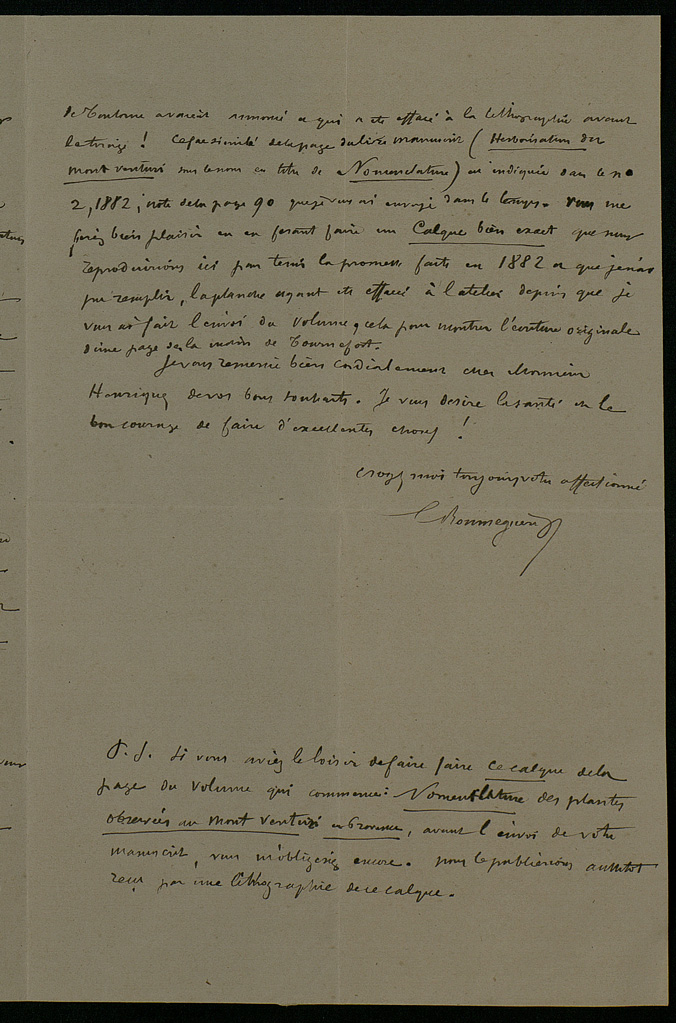 de Toulouse avaient annoncé et qui a été effacé à la lithographie avant
le tirage ! Ce facsimilé de la page du livre manuscrit (Herborisation du
mont ventoux sous le nom en titre de Nomenclature) est indiquée dans le no
2, 1882, note de la page 90 que je vous ai envoyé dans le temps. Vous me
feriez bien plaisir en en faisant faire un Calque bien exact que nous
reproduirions ici pour tenir la promesse faite en 1882 et que je n'ai
pu remplir, la planche ayant été effacé à l'atelier depuis que je
vous ai fait l'envoi du volume, cela pour montrer l'écriture originale
d'une page de la main de Tournefort.
Je vous remercie bien cordialement cher Monsieur
Henriquez de vos bons souhaits. Je vous désire la santé et le
bon courage de faire d'excellentes choses !
croyez moi toujours votre affectionné
C Roumeguère
P. S. Si vous aviez le loisir de faire faire ce calque de la
page du volume qui commence : Nomenclature des plantes
observées au mont Ventoux en Provence, avant l'envoi de votre
manuscrit, vous m'obligeriez encore. nous le publierions aussitôt
reçu par une lithographie de ce calque.